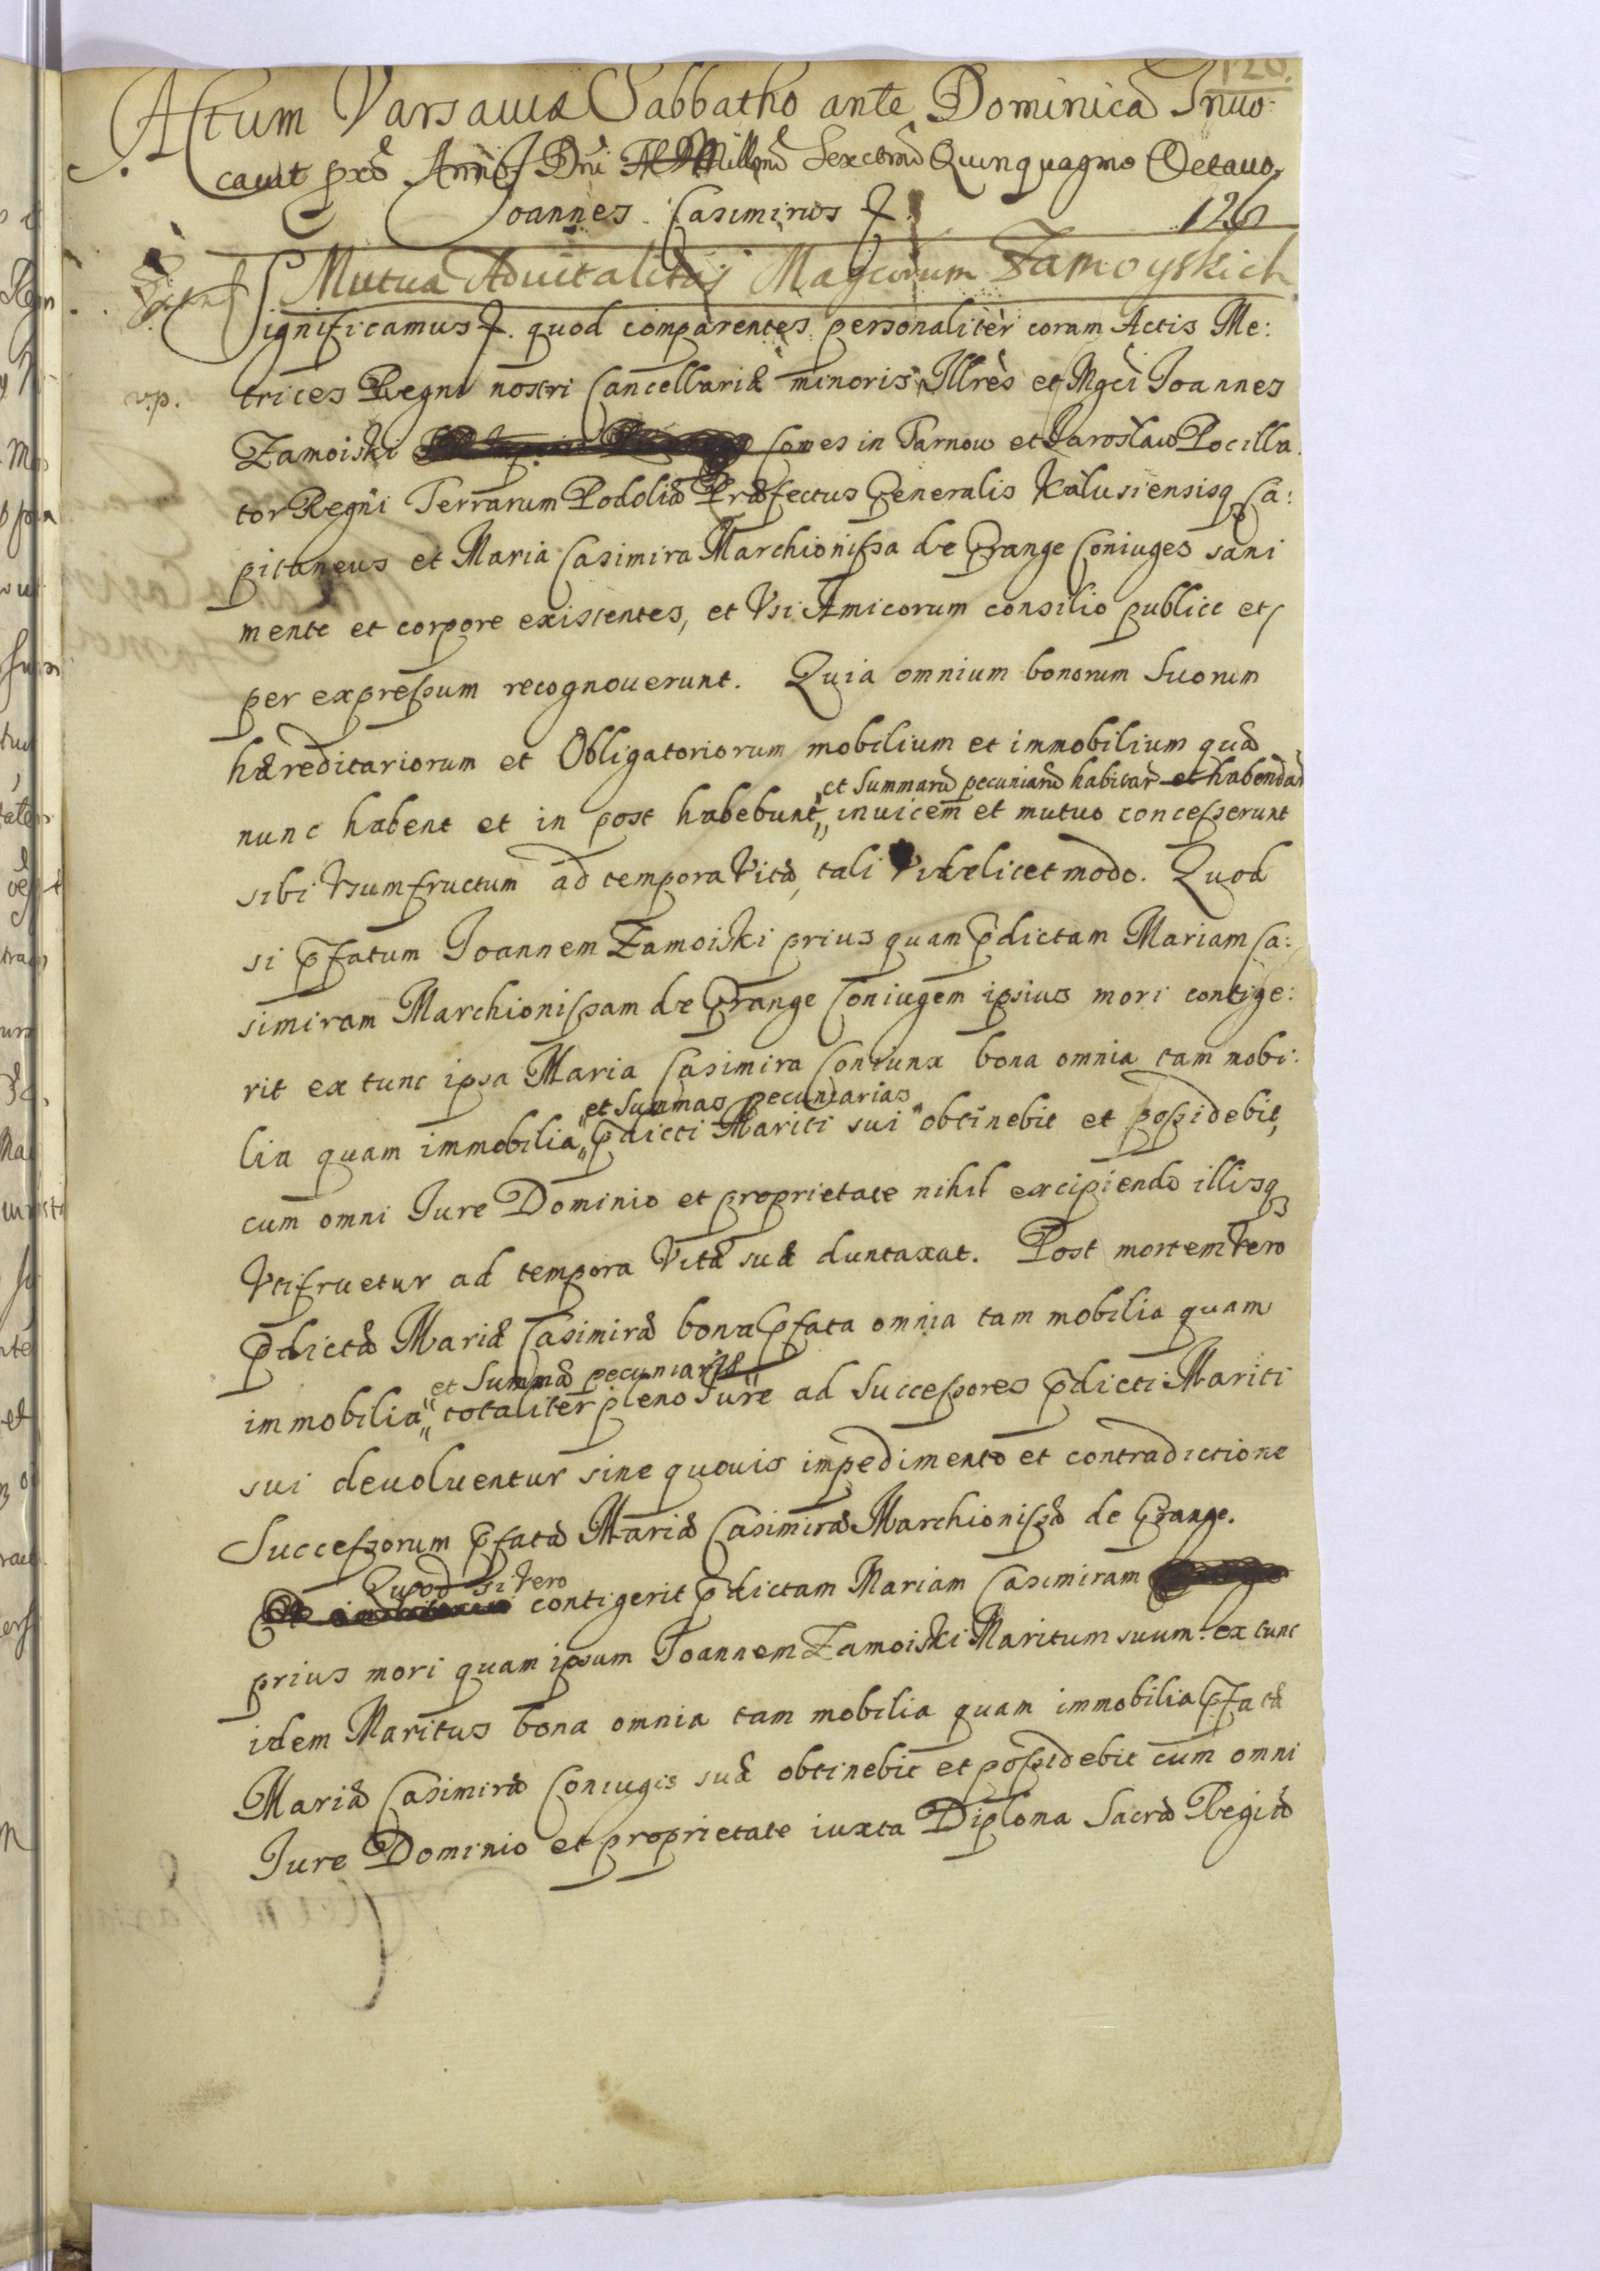 126.
Actum Varsaviæ Sabbatho ante Dominicã Invo:
cavit pxõ Anno Dni Millmõ Sexctmõ Quinquagmo Octavo,
Joannes Casimirus
126
Mutua Advitalitas Magcorum Zamoyskich
Significamus quod comparentes personaliter coram Actis Me:
v.p.
trices Regni nostri Cancellariæ minoris Illres et Mgci Joannes
Zamoiski Comes in Tarnow et Jarosław Pocilla
tor Regni Terrarum Podoliæ Præfectus Generalis Kalusiensisq Ca:
pitaneus et Maria Casimira Marchionissa de Grange Coniuges sani
mente et corpore existentes, et Vsi Amicorum consilio publice et
per expressum recognoverunt. Quia omnium bonorum Suorum
hæreditariorum et Obligatoriorum mobilium et immobilium quæ
et Summarũ pecuniarũ habitarũ et habendarũ
nunc habent et in post habebunt, invicem et mutuo concesserunt
sibi Vsumfructum ad tempora Vitæ, tali Videlicet modo. Quod
si pfatum Joannem Zamoiski prius quam pdictam Mariam Ca:
simiram Marchionissam de Grange Coniugem ipsius mori contige:
rit ex tunc ipsa Maria Casimira Coniunx bona omnia tam mobi:
et Summas pecuniarias
lia quam immobilia, pdicti Mariti sui obtinebit et possidebit,
cum omni Jure Dominio et proprietate nihil excipiendo illisq
Vtifruetur ad tempora Vitæ suæ duntaxat. Post mortem Vero
pdictæ Mariæ Casimiræ bona pfata omnia tam mobilia quam
et Summæ pecuniariæ
immobilia, totaliter pleno Jure ad Successores pdicti Mariti
sui devolventur sine quovis impedimento et contradictione
Successorum pfatæ Mariæ Casimiræ Marchionissæ de Grange.
Quod si Vero
contigerit pdictam Mariam Casimiram
prius mori quam ipsum Joannem Zamoiski Maritum suum: ex tunc
idem Maritus bona omnia tam mobilia quam immobilia pfatæ
Mariæ Casimiræ Coniugis suæ obtinebit et possidebit cum omni
Jure Dominio et proprietate iuxta Diploma Sacræ Regiæ